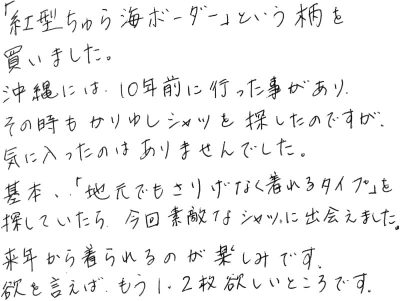 「紅型ちゅら海ボーダー」という柄を
買いました。
沖縄には、10年前に行った事があり、
その時もかりゆしシャツを探したのですが、
気に入ったのはありませんでした。
基本、「地元でもさりげなく着れるタイプ」を
探していたら、今回素敵なシャツに出会えました。
来年から着られるのが楽しみです。
欲を言えば、もう1、2枚欲しいところです。